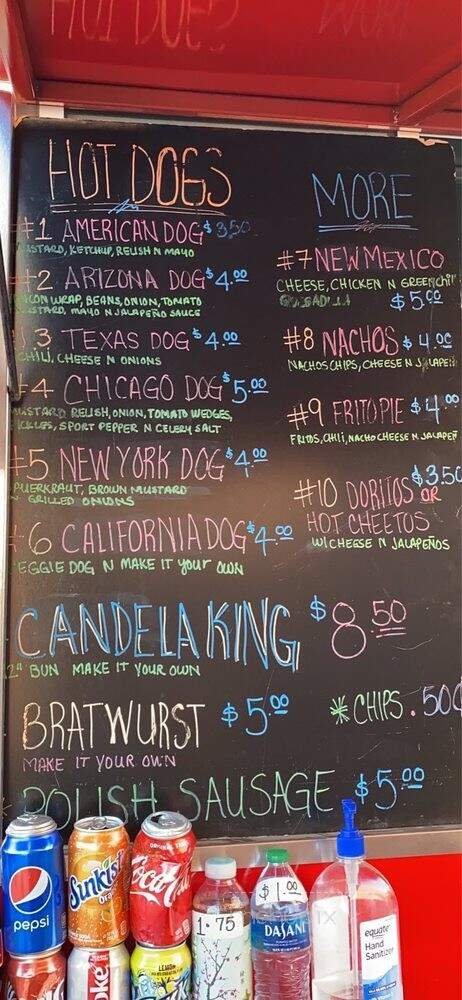 HOT DOGS
#1 AMERICAN DOG $3.50
MUSTARD, KETCHUP, RELISH N MAYO
#2 ARIZONA DOG $4.00
BACON WRAP, BEANS, ONION, TOMATO
MUSTARD, MAYO N JALAPEÑO SAUCE
#3 TEXAS DOG $4.00
CHILI, CHEESE N ONIONS
#4 CHICAGO DOG $5.00
MUSTARD RELISH, ONION, TOMATO WEDGES,
PICKLES, SPORT PEPPER N CELERY SALT
#5 NEW YORK DOG $4.00
PUERKRAUT, BROWN MUSTARD
N GRILLED ONIONS
#6 CALIFORNIA DOG $4.00
VEGGIE DOG N MAKE IT YOUR OWN
MORE
#7 NEW MEXICO
CHEESE, CHICKEN N GREEN CHILI
$5.00
#8 NACHOS $4.00
NACHOS CHIPS, CHEESE N JALAPEÑ
#9 FRITO PIE $4.00
FRITOS, CHILI, NACHO CHEESE N JALAPEÑ
$3.50
#10 DORITOS OR
HOT CHEETOS
W/CHEESE N JALAPEÑOS
CANDELA KING $8.50
12" BUN MAKE IT YOUR OWN
BRATWURST $5.00
MAKE IT YOUR OWN
* CHIPS .50¢
POLISH SAUSAGE $5.00
pepsi
Sunkist
Coca-Cola
1.75
$1.00
DASANI
equate
Hand
Sanitizer
LEMON